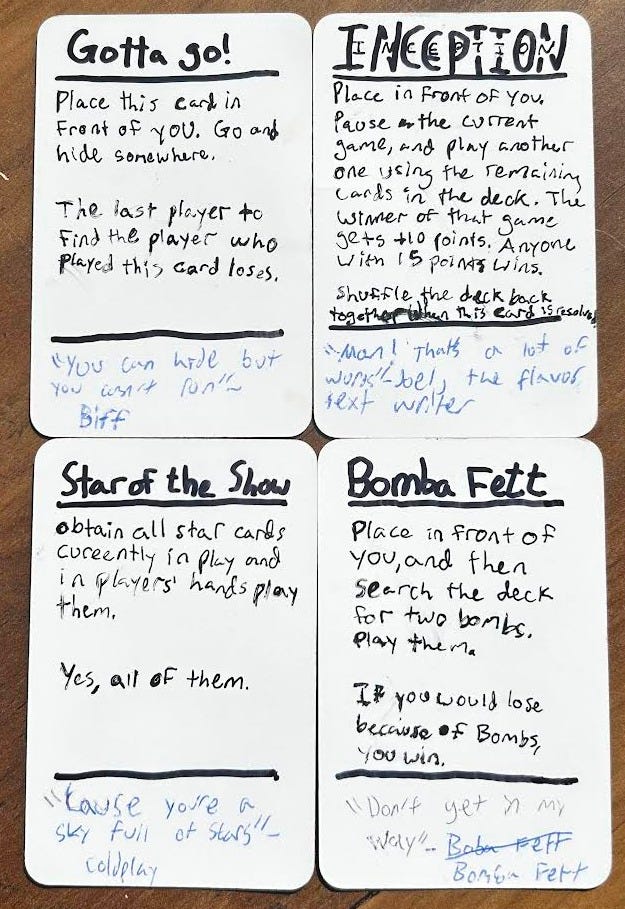 Gotta go!
Place this card in
Front of you. Go and
hide somewhere.
The last player to
Find the player who
Played this card loses.
"You can hide but
you can't run"-
Biff
INCEPTION
Place in Front of you.
Pause the current
game, and play another
one using the remaining
cards in the deck. The
winner of that game
gets +10 points. Anyone
with 15 points wins.
Shuffle the deck back
together when this card is resolved
"Man! Thats a lot of
words"-Joel, the flavor
text writer
Star of the Show
obtain all star cards
cureently in play and
in players' hands play
them.
Yes, all of them.
"Cause you're a
sky full of stars"-
Coldplay
Bomba Fett
Place in front of
you, and then
search the deck
for two bombs.
Play them.
IF you would lose
because of Bombs,
you win.
"Don't get in my
way"- Boba Fett
Bomba Fett